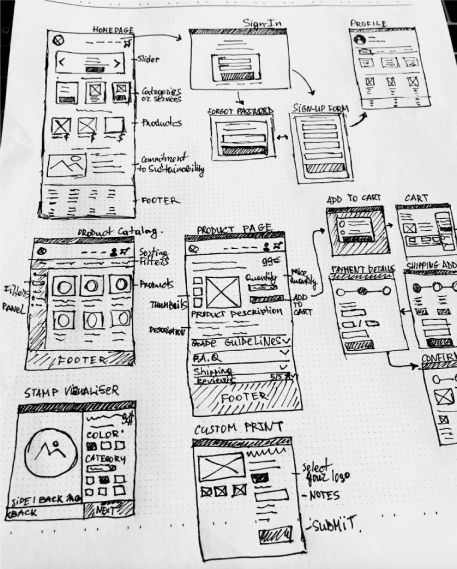 HOMEPAGE
Slider
Categories
or services
Products
Commitment
to Sustainability
FOOTER
Sign In
FORGOT PASSWORD
SIGN-UP FORM
PROFILE
PRODUCT Catalog
Sorting
Filters
Filters
PANEL
Products
FOOTER
PRODUCT PAGE
99€
Quantity
Price
Quantity
ADD
TO
CART
Thumbnails
PRODUCT Description
Description
GUIDELINES
F.A.Q
Shipping
Reviews 5/5
FOOTER
ADD TO CART
CART
PAYMENT DETAILS
SHIPPING ADD
CONFIR
STAMP VISUALISER
COLOR
CATEGORY
SIDE 1 BACK
BACK
NEXT
CUSTOM PRINT
Select
your logo
NOTES
SUBMIT